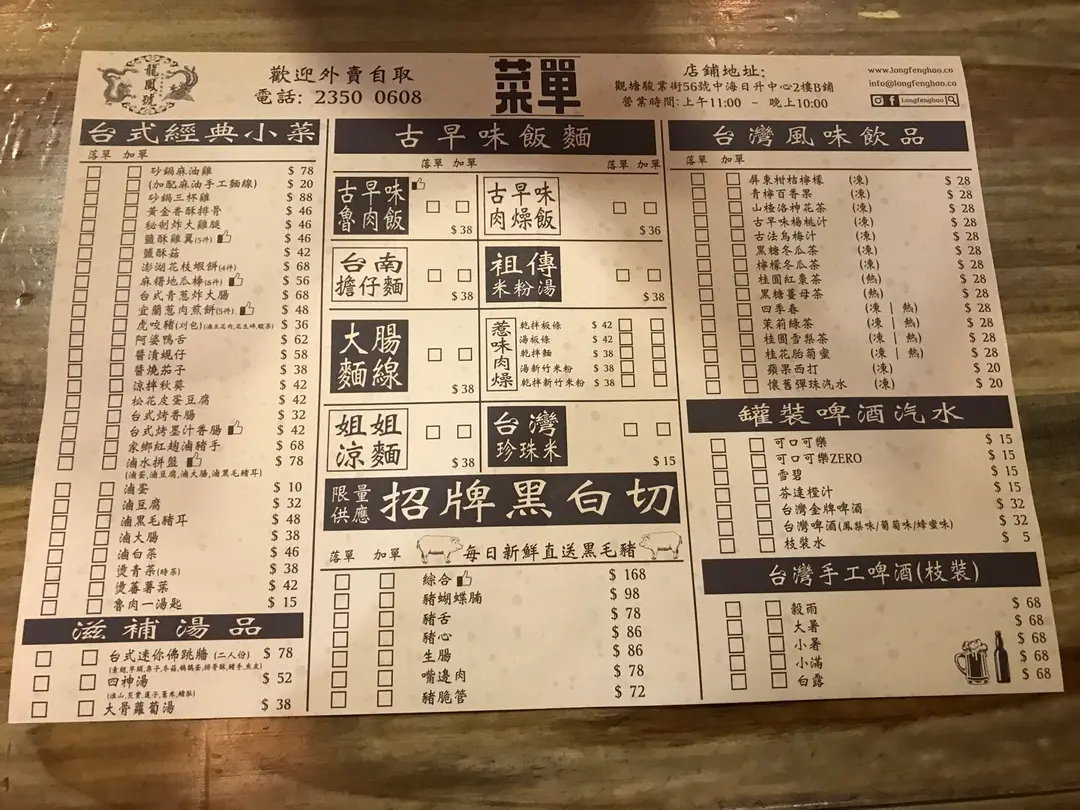 龍鳳號
歡迎外賣自取
電話: 2350 0608
菜單
店鋪地址:
觀塘駿業街56號中海日升中心2樓B鋪
營業時間:上午11:00 - 晚上10:00
www.longfenghao.co
info@longfenghao.co
Longfenghao
台式經典小菜
落單 加單
砂鍋麻油雞 $ 78
(加配麻油手工麵線) $ 20
砂鍋三杯雞 $ 88
黃金香酥排骨 $ 46
秘制炸大雞腿 $ 46
鹽酥雞翼(5件) $ 46
鹽酥菇 $ 42
澎湖花枝蝦餅(4件) $ 68
麻糬地瓜棒(6件) $ 56
台式青蔥炸大腸 $ 68
宜蘭蔥肉煎餅(5件) $ 48
虎咬豬(刈包)(滷五花肉,花生碎,酸菜) $ 36
阿婆鴨舌 $ 62
醬漬蜆仔 $ 58
醬燒茄子 $ 38
涼拌秋葵 $ 42
松花皮蛋豆腐 $ 42
台式烤香腸 $ 32
台式烤墨汁香腸 $ 42
家鄉紅趜滷豬手 $ 68
滷水拼盤 $ 78
(滷蛋,滷豆腐,滷大腸,滷黑毛豬耳)
滷蛋 $ 10
滷豆腐 $ 32
滷黑毛豬耳 $ 48
滷大腸 $ 38
滷白菜 $ 46
燙青菜(時菜) $ 38
燙蕃薯葉 $ 42
魯肉一湯匙 $ 15
滋補湯品
台式迷你佛跳牆 (二人份) $ 78
四神湯 $ 52
(淮山,芡實,蓮子,薏米,豬肚)
大骨蘿蔔湯 $ 38
古早味飯麵
落單 加單 落單 加單
古早味魯肉飯 $ 38
古早味肉燥飯 $ 36
台南擔仔麵 $ 38
祖傳米粉湯 $ 38
大腸麵線 $ 38
惹味肉燥
乾拌板條 $ 42
湯板條 $ 42
乾拌麵 $ 38
湯新竹米粉 $ 38
乾拌新竹米粉 $ 38
姐姐涼麵 $ 38
台灣珍珠米 $ 15
限量供應 招牌黑白切
落單 加單 每日新鮮直送黑毛豬
綜合 $ 168
豬蝴蝶腩 $ 98
豬舌 $ 78
豬心 $ 86
生腸 $ 86
嘴邊肉 $ 78
豬脆管 $ 72
台灣風味飲品
落單 加單
屏東柑桔檸檬 (凍) $ 28
青檸百香果 (凍) $ 28
山楂洛神花茶 (凍) $ 28
古早味楊桃汁 (凍) $ 28
古法烏梅汁 (凍) $ 28
黑糖冬瓜茶 (凍) $ 28
檸檬冬瓜茶 (凍) $ 28
桂圓紅棗茶 (熱) $ 28
黑糖薑母茶 (熱) $ 28
四季春 (凍 | 熱) $ 28
茉莉綠茶 (凍 | 熱) $ 28
桂圓雪梨茶 (凍 | 熱) $ 28
桂花胎菊蜜 (凍 | 熱) $ 28
蘋果西打 (凍) $ 20
懷舊彈珠汽水 (凍) $ 20
罐裝啤酒汽水
可口可樂 $ 15
可口可樂ZERO $ 15
雪碧 $ 15
芬達橙汁 $ 15
台灣金牌啤酒 $ 32
台灣啤酒(鳳梨味/葡萄味/蜂蜜味) $ 32
枝裝水 $ 5
台灣手工啤酒(枝裝)
穀雨 $ 68
大暑 $ 68
小暑 $ 68
小滿 $ 68
白露 $ 68